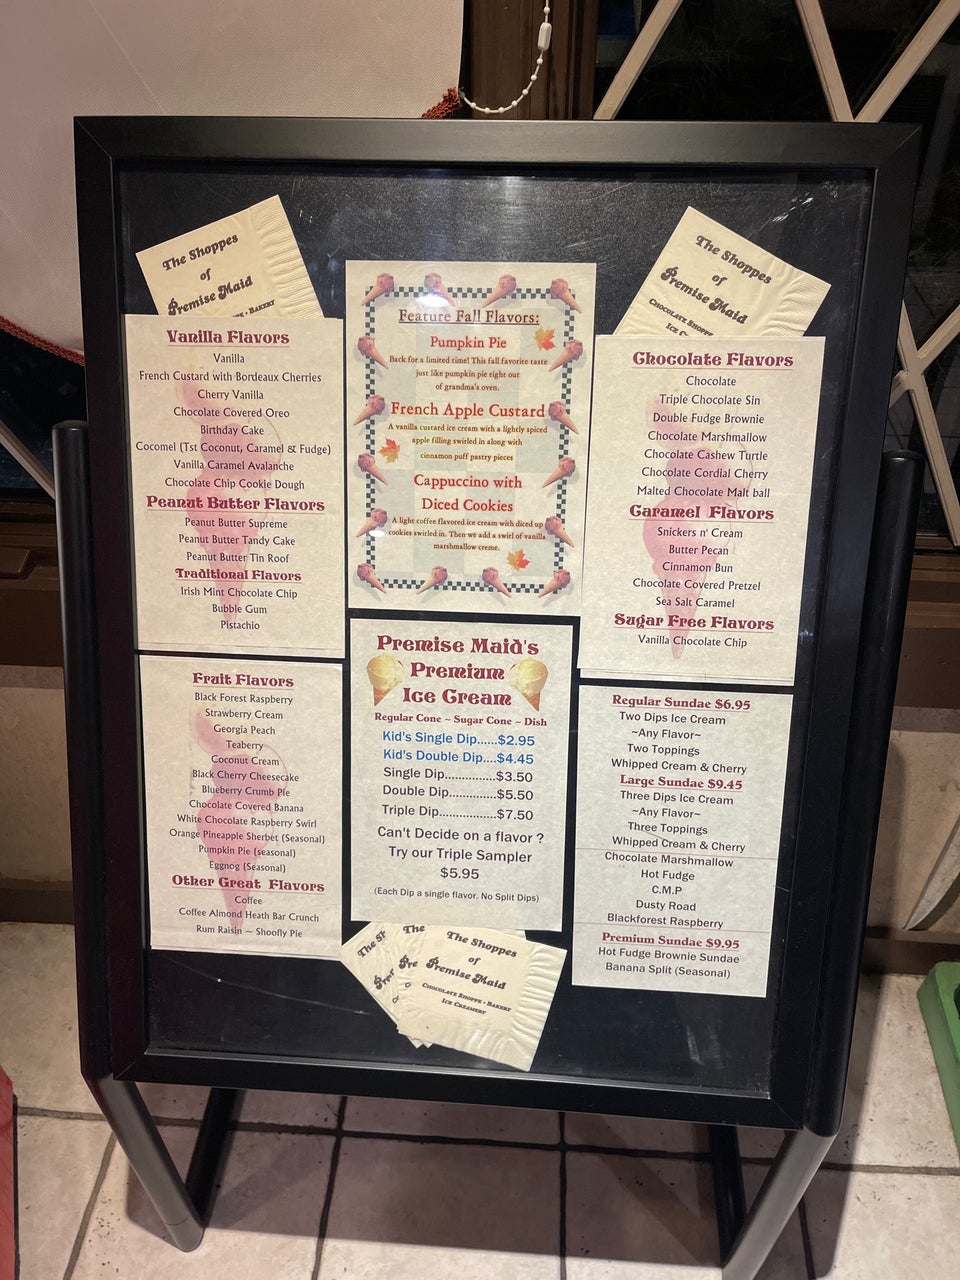 The Shoppes
of
Premise Maid
BAKERY
The Shoppes
of
Premise Maid
Vanilla Flavors
Vanilla
French Custard with Bordeaux Cherries
Cherry Vanilla
Chocolate Covered Oreo
Birthday Cake
Cocomel (Tst Coconut, Caramel & Fudge)
Vanilla Caramel Avalanche
Chocolate Chip Cookie Dough
Peanut Butter Flavors
Peanut Butter Supreme
Peanut Butter Tandy Cake
Peanut Butter Tin Roof
Traditional Flavors
Irish Mint Chocolate Chip
Bubble Gum
Pistachio
Feature Fall Flavors:
Pumpkin Pie
Back for a limited time! This fall favorite taste
just like pumpkin pie right out
of grandma's oven.
French Apple Custard
A vanilla custard ice cream with a lightly spiced
apple filling swirled in along with
cinnamon puff pastry pieces
Cappuccino with
Diced Cookies
A light coffee flavored ice cream with diced up
cookies swirled in. Then we add a swirl of vanilla
marshmallow creme.
Chocolate Flavors
Chocolate
Triple Chocolate Sin
Double Fudge Brownie
Chocolate Marshmallow
Chocolate Cashew Turtle
Chocolate Cordial Cherry
Malted Chocolate Malt ball
Caramel Flavors
Snickers n' Cream
Butter Pecan
Cinnamon Bun
Chocolate Covered Pretzel
Sea Salt Caramel
Sugar Free Flavors
Vanilla Chocolate Chip
Fruit Flavors
Black Forest Raspberry
Strawberry Cream
Georgia Peach
Teaberry
Coconut Cream
Black Cherry Cheesecake
Blueberry Crumb Pie
Chocolate Covered Banana
White Chocolate Raspberry Swirl
Orange Pineapple Sherbet (Seasonal)
Pumpkin Pie (seasonal)
Eggnog (Seasonal)
Other Great Flavors
Coffee
Coffee Almond Heath Bar Crunch
Rum Raisin ~ Shoofly Pie
Premise Maid's
Premium
Ice Cream
Regular Cone ~ Sugar Cone ~ Dish
Kid's Single Dip......$2.95
Kid's Double Dip....$4.45
Single Dip..............$3.50
Double Dip............$5.50
Triple Dip..............$7.50
Can't Decide on a flavor ?
Try our Triple Sampler
$5.95
(Each Dip a single flavor. No Split Dips)
Regular Sundae $6.95
Two Dips Ice Cream
~Any Flavor~
Two Toppings
Whipped Cream & Cherry
Large Sundae $9.45
Three Dips Ice Cream
~Any Flavor~
Three Toppings
Whipped Cream & Cherry
Chocolate Marshmallow
Hot Fudge
C.M.P
Dusty Road
Blackforest Raspberry
Premium Sundae $9.95
Hot Fudge Brownie Sundae
Banana Split (Seasonal)
The
The Shoppes
of
Premise Maid
Chocolate Shoppe • Bakery
Ice Creamery